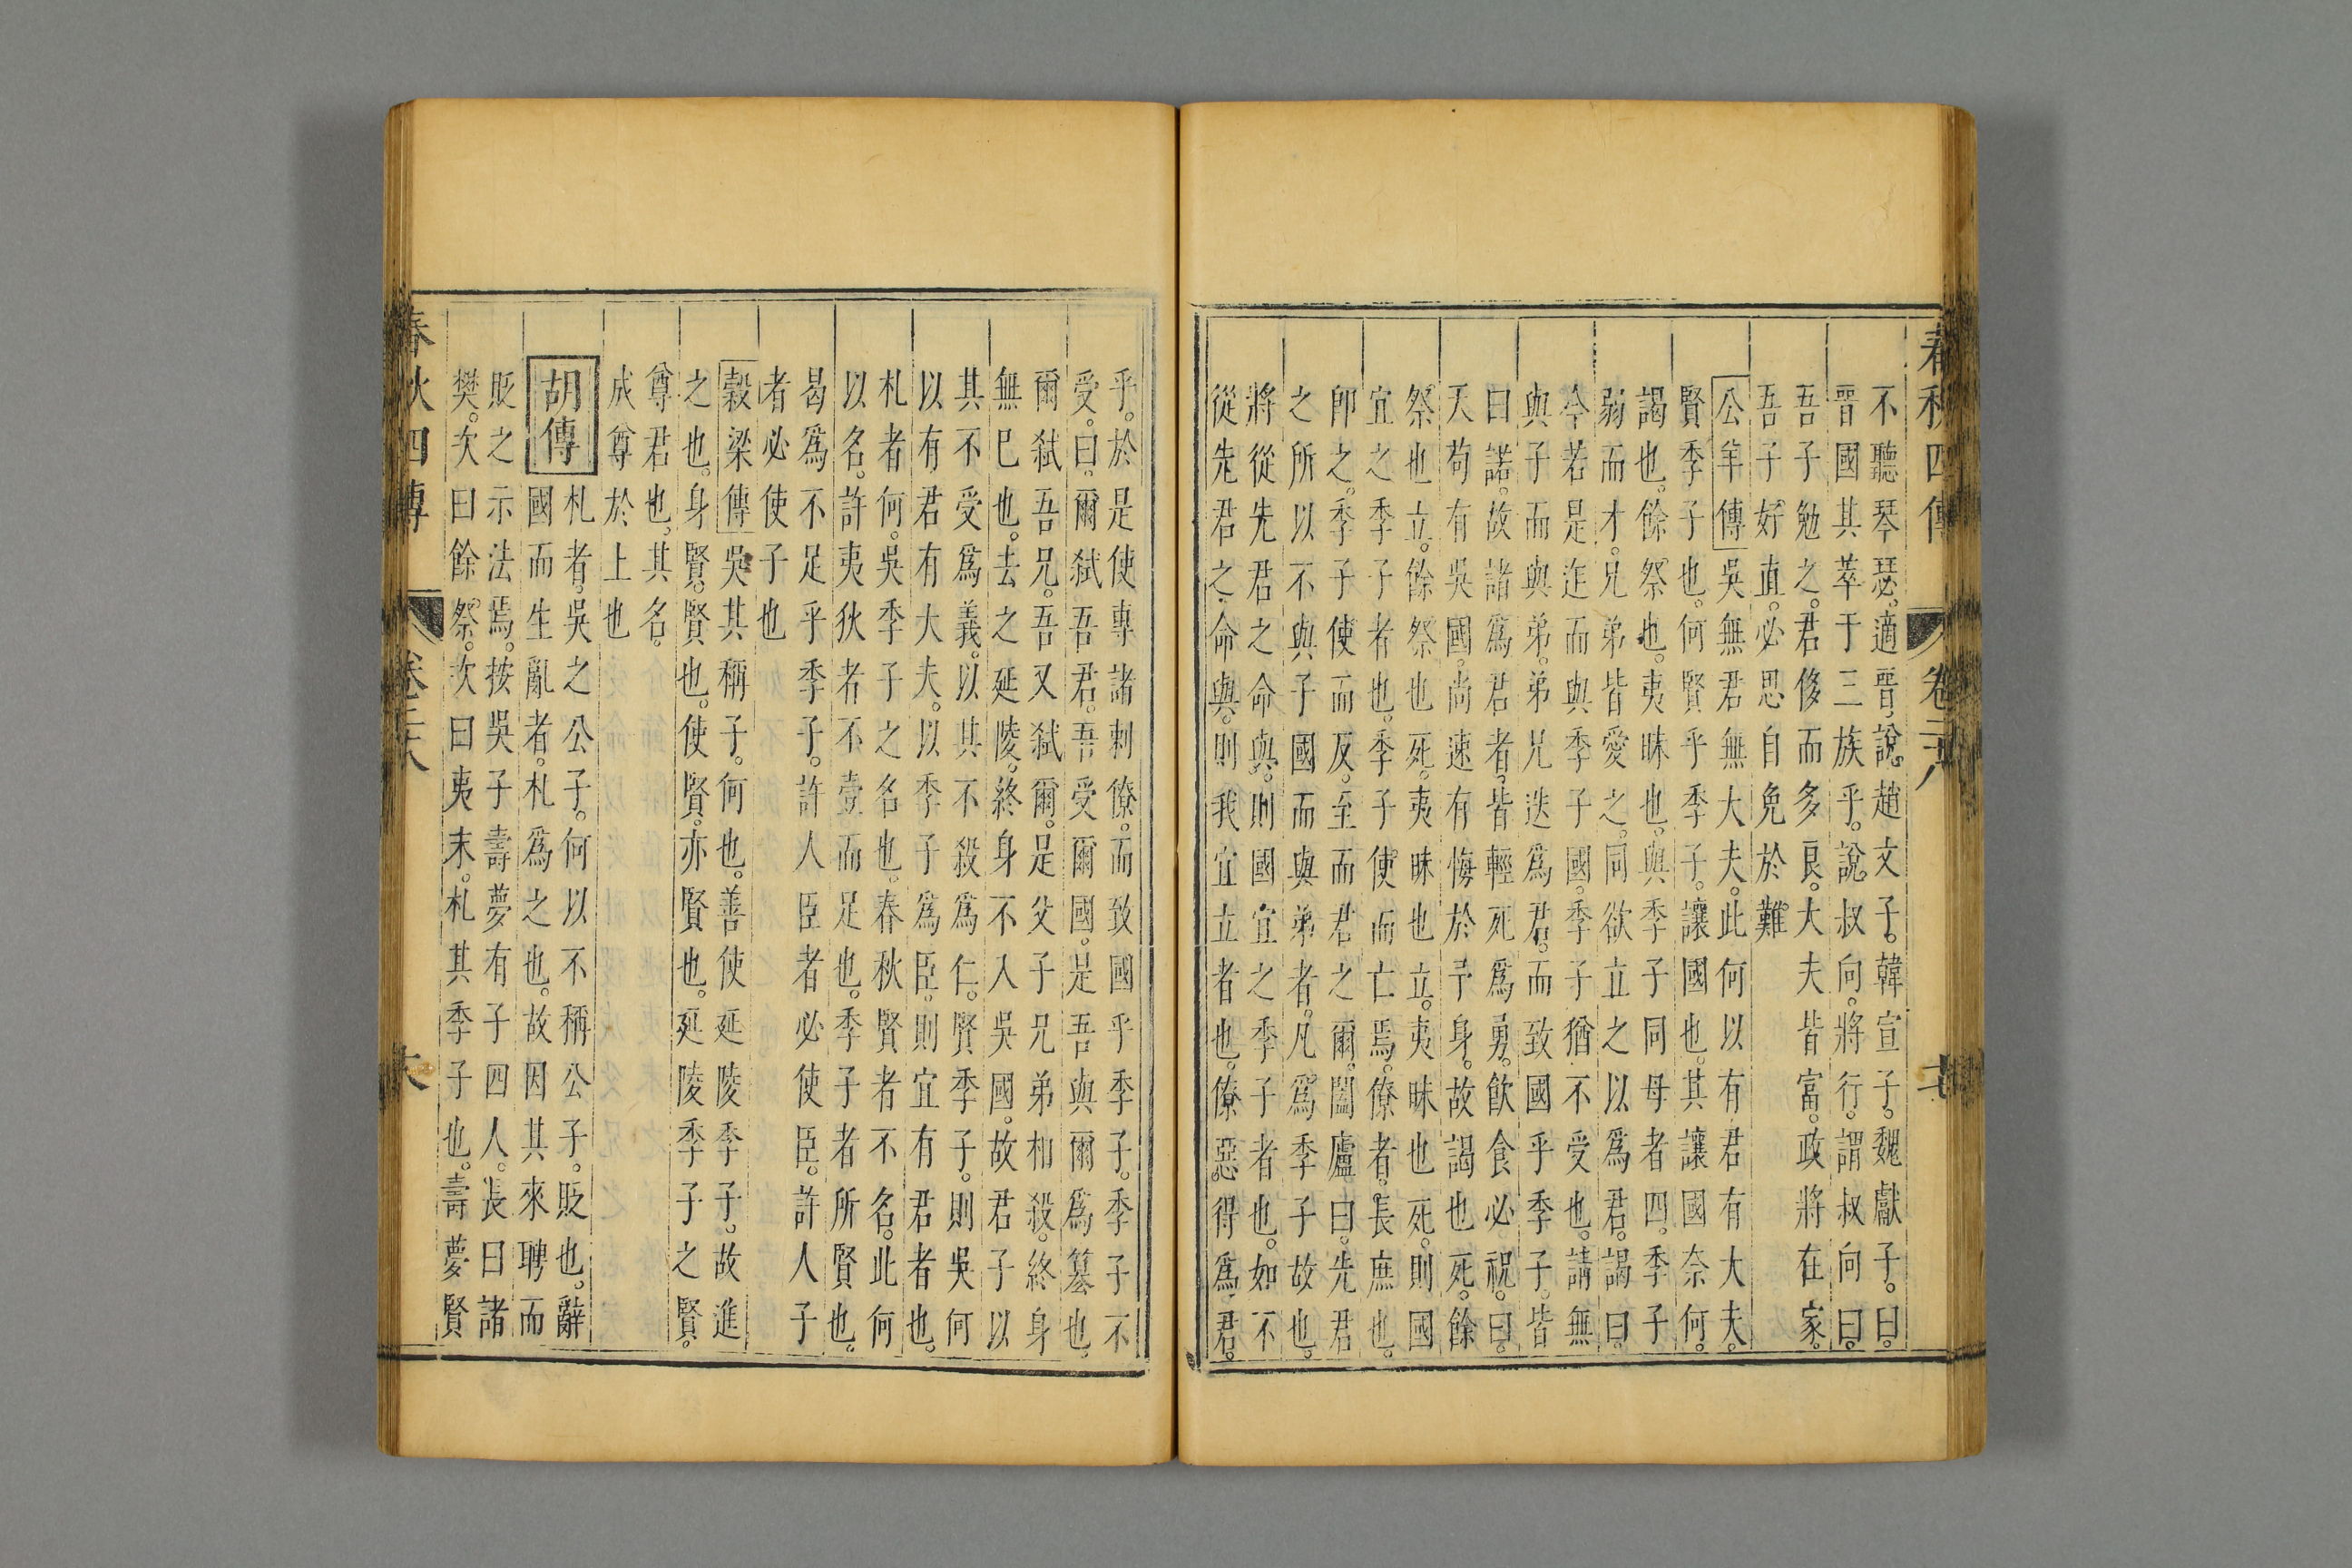 春秋四傳 卷二十八 十七
不聽琴瑟。適晉。說趙文子。韓宣子。魏獻子。曰。
晉國其萃于三族乎。說叔向。將行。謂叔向曰。
吾子勉之。君侈而多良。大夫皆富。政將在家。
吾子好直。必思自免於難
公羊傳吳無君無大夫。此何以有君有大夫。
賢季子也。何賢乎季子。讓國也。其讓國奈何。
謁也。餘祭也。夷昧也。與季子同母者四。季子
弱而才。兄弟皆愛之。同欲立之以爲君。謁曰。
今若是迮而與季子國。季子猶不受也。請無
與子而與弟。弟兄迭爲君。而致國乎季子。皆
曰諾。故諸爲君者。皆輕死爲勇。飲食必祝。曰。
天苟有吳國。尚速有悔於予身。故謁也死。餘
祭也立。餘祭也死。夷昧也立。夷昧也死。則國
宜之季子者也。季子使而亡焉。僚者。長庶也。
卽之。季子使而反。至而君之爾。闔廬曰。先君
之所以不與子國而與弟者。凡爲季子故也。
將從先君之命與。則國宜之季子者也。如不
從先君之命與。則我宜立者也。僚惡得爲君。
乎。於是使專諸刺僚。而致國乎季子。季子不
受。曰。爾弒吾君。吾受爾國。是吾與爾爲篡也。
爾弒吾兄。吾又弒爾。是父子兄弟相殺。終身
無已也。去之延陵。終身不入吳國。故君子以
其不受爲義。以其不殺爲仁。賢季子。則吳何
以有君有大夫。以季子爲臣。則宜有君者也。
札者何。吳季子之名也。春秋賢者不名。此何
以名。許夷狄者不壹而足也。季子者所賢也。
曷爲不足乎季子。許人臣者必使臣。許人子
者必使子也
穀梁傳吳其稱子。何也。善使延陵季子。故進
之也。身賢。賢也。使賢。亦賢也。延陵季子之賢。
尊君也。其名。
成尊於上也
胡傳札者。吳之公子。何以不稱公子。貶也。辭
國而生亂者。札爲之也。故因其來聘而
貶之示法焉。按吳子壽夢有子四人。長曰諸
樊。次曰餘祭。次曰夷末。札其季子也。壽夢賢
春秋四傳 卷二十八 十八